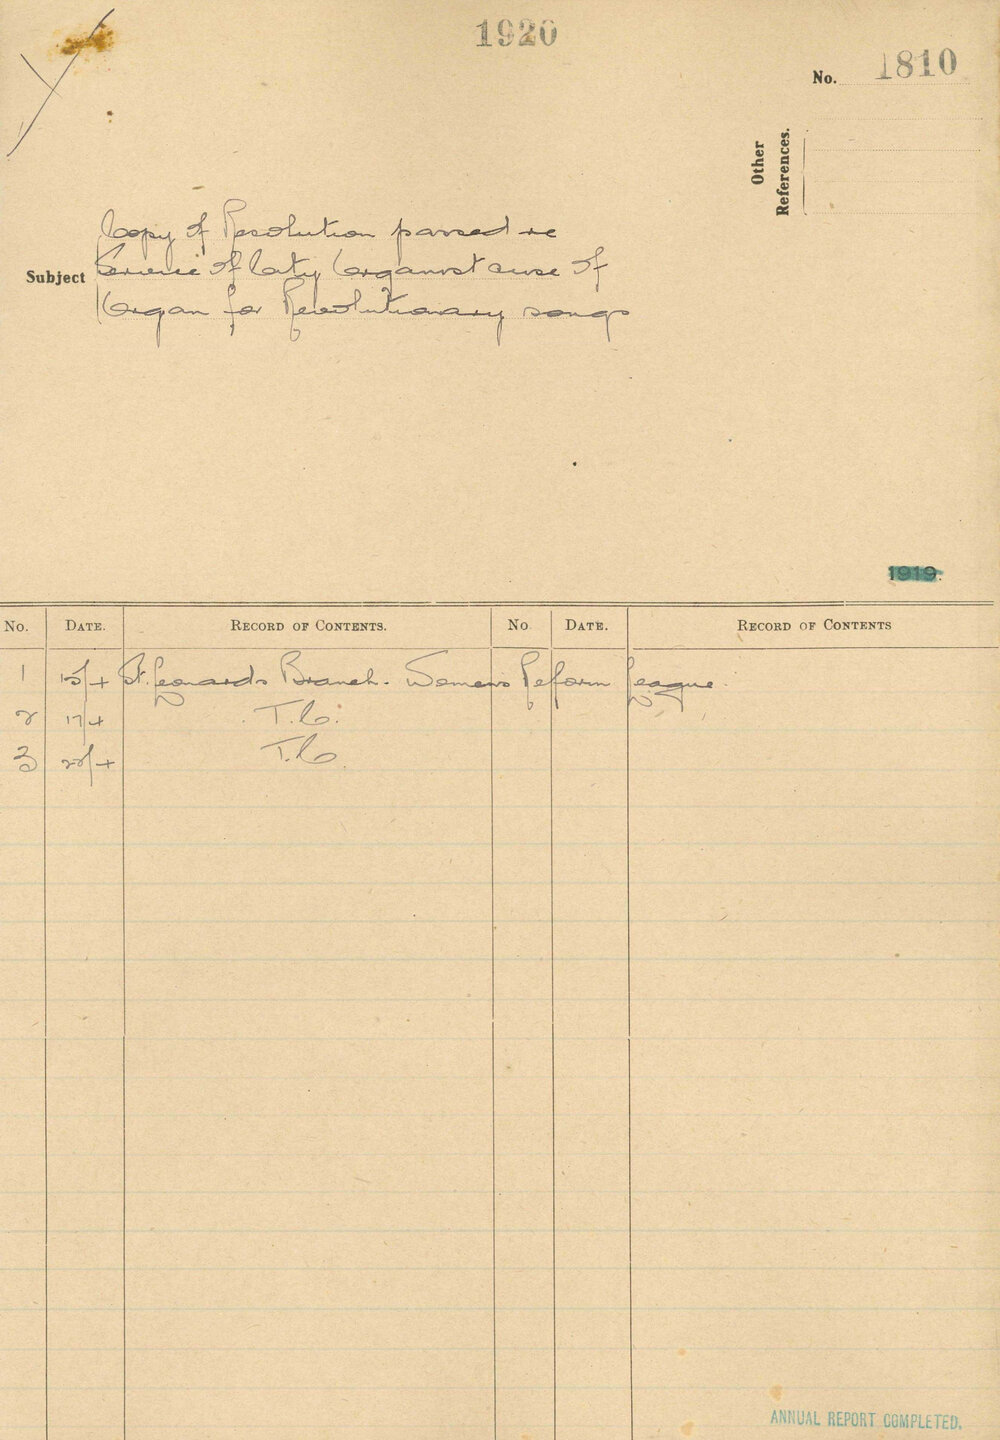 1920
No. 1810
Other References.
Copy of Resolution passed re
Subject Service of City Organist & use of
Organ for Revolutionary songs
1919.
No. DATE. RECORD OF CONTENTS. No. DATE. RECORD OF CONTENTS
1 15/4 St. Leonards Branch. Women's Reform League.
2 17/4 T.C.
3 22/4 T.C.
ANNUAL REPORT COMPLETED.